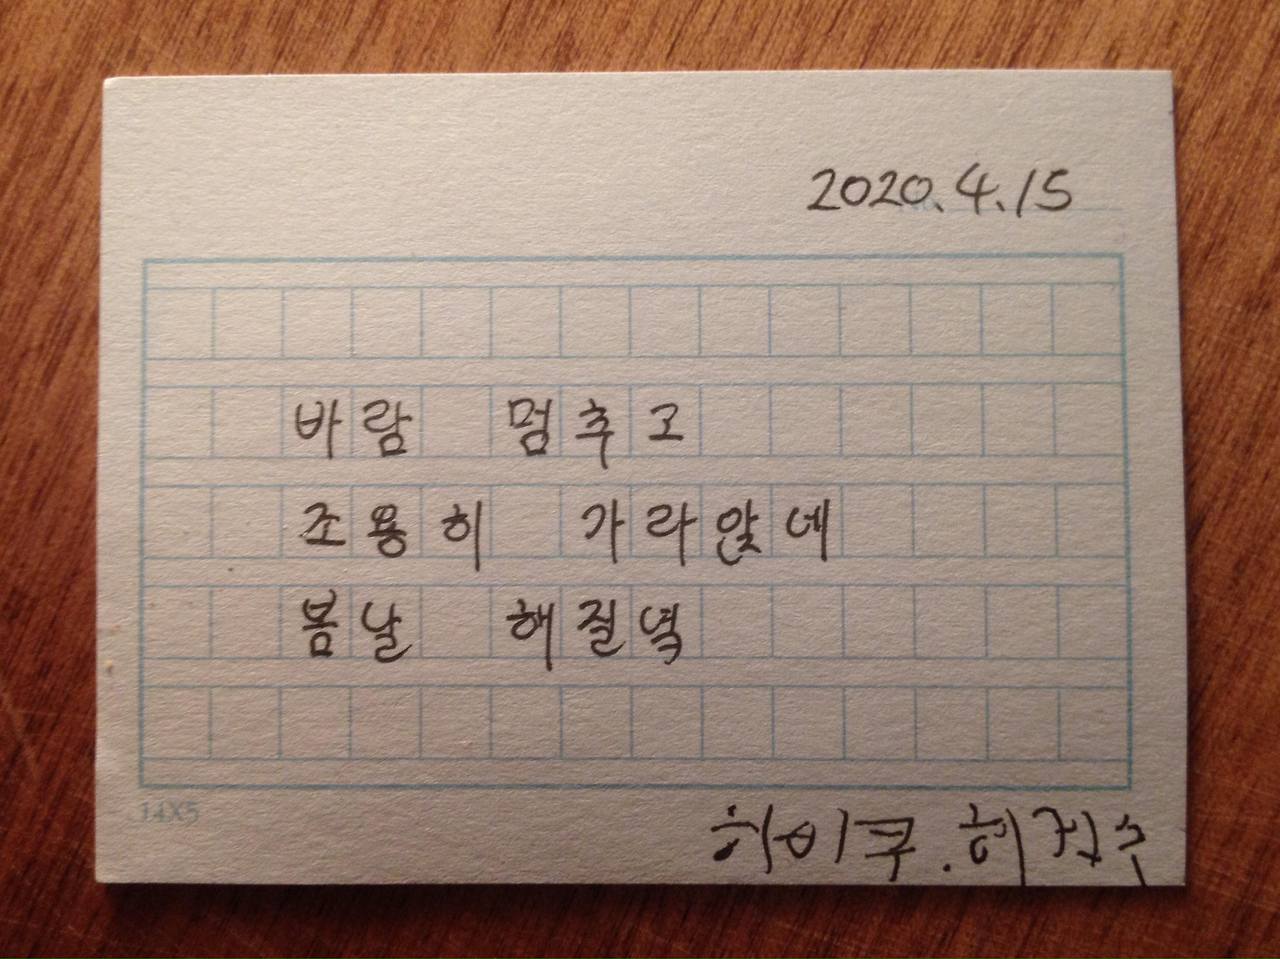 2020.4.15
바람 멈추고
조용히 가라앉네
봄날 해질녘
14X5
하이쿠.